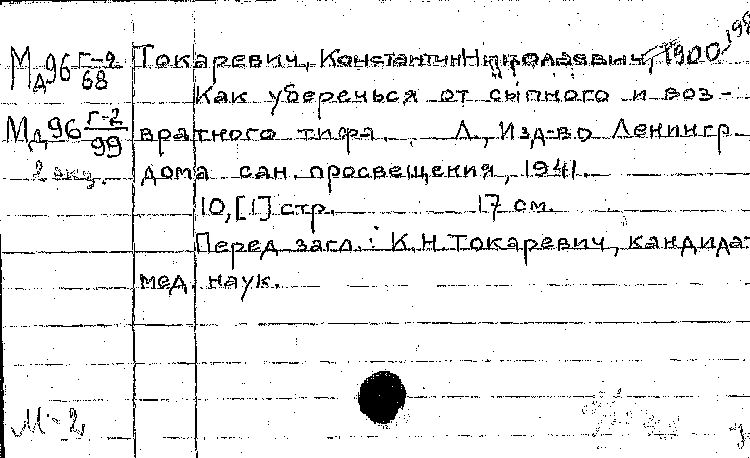 Мд96 Г-2/68 Токаревич, Константин Николаевич, 1900-198
Как уберечься от сыпного и воз-
Мд96 Г-2/99 вратного тифа. Л., Изд-во Ленингр.
2 экз. дома сан. просвещения, 1941.
10, [1] стр. 17 см.
Перед загл.: К.Н. Токаревич, кандида-
мед. наук.
М-2